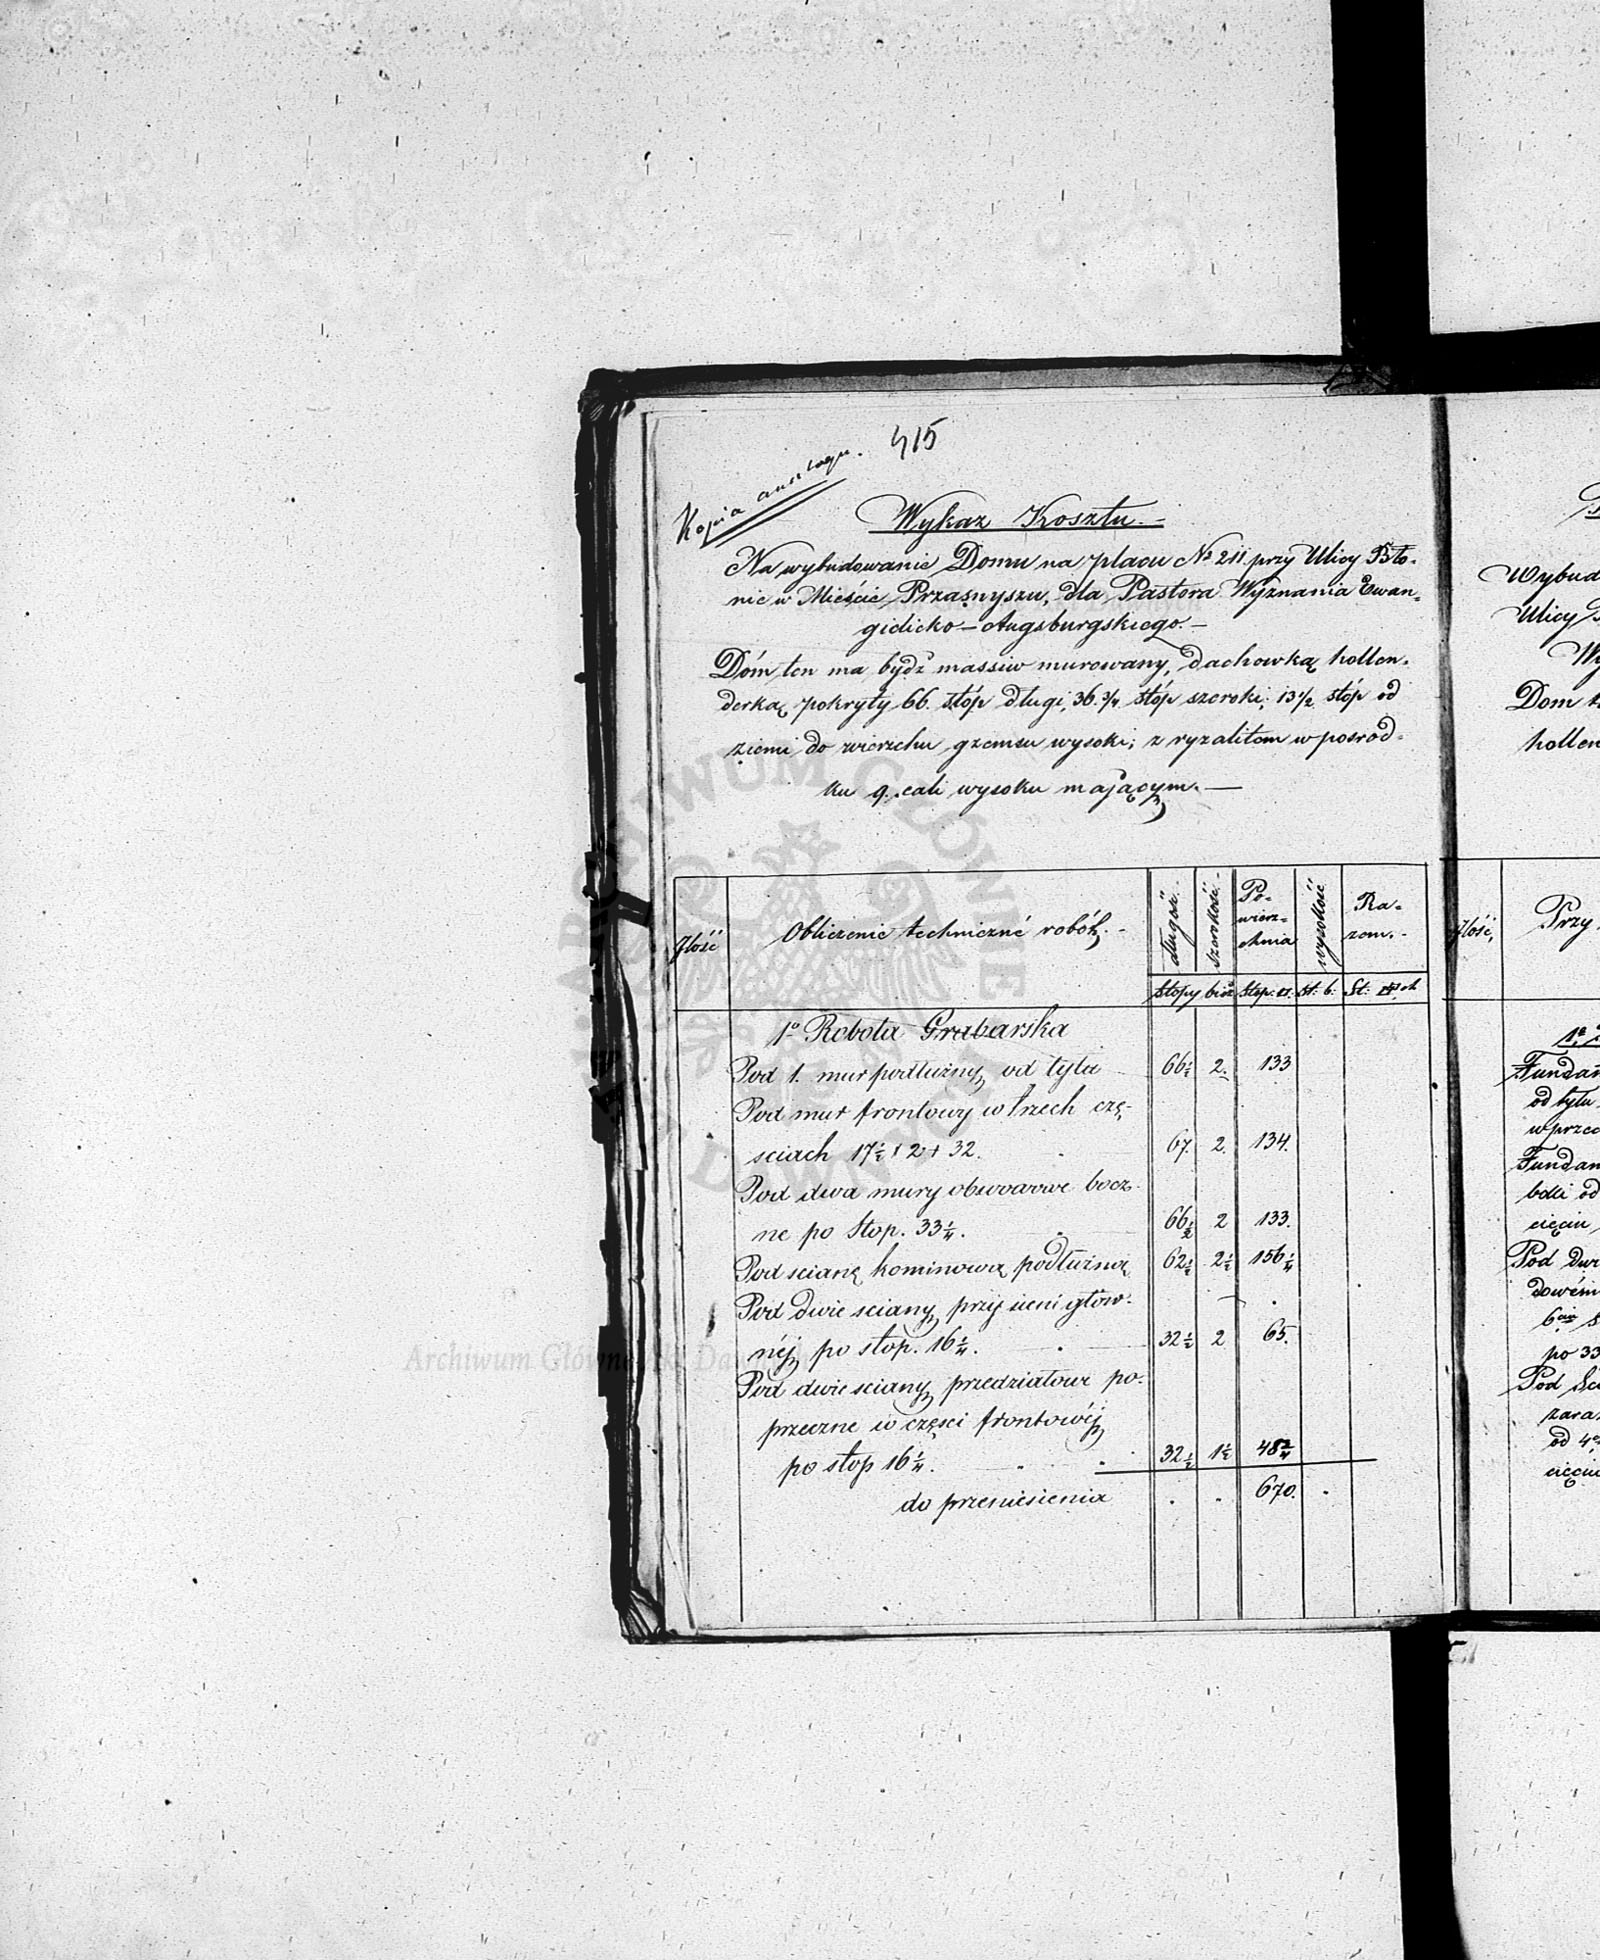 415
Kopia anszlagu.
Wykaz Kosztu.-
Na wybudowanie Domu na placu № 211 przy Ulicy Bło-
nie w Mieście Przasnyszu, dla Pastora Wyznania Ewan-
gielicko - Augsburgskiego.-
Dóm ten ma bydź massiw murowany, dachowką hollen-
derką pokryty 66 stóp długi, 36 3/4 stóp szeroki, 13 1/2 stóp od
ziemi do wierzchu gzemsu wysoki; z ryzalitem w pośrod-
ku 9. cali wysoku mającym.—
Jlość
Obliczenie techniczné robót.-
długość.
Szerokość.
Po-
wierz-
chnia
wysokość
Ra-
zem.-
Stopy bież Stop. □. St: b. St: □ch
1o Robota Grabarska
Pod 1. mur podłużny od tyłu 66 1/2 2. 133
Pod mur frontowy w trzech czę-
sciach 17 1/2 + 2 + 32. 67. 2. 134.
Pod dwa mury obwodowe bocz-
ne po Stop. 33 1/4. 66 1/2 2 133.
Pod scianę kominową podłużną 62 1/2 2 1/2 156 1/4
Pod dwie sciany przy sieni głów-
néj po stop. 16 1/4. 32 1/2 2 65.
Pod dwie sciany przedziałowe po-
przeczne w części frontowéj
po stop 16 1/4. 32 1/2 1 1/2 48 3/4
do przeniesienia 670.
Wybud
Ulicy
Wy
Dom
hollen
Jlość,
Przy
Fundam
od tyłu
w przec
Fundam
od
cięciu
Pod Dw
po 33
Pod
zara
od
cięciu
Archiwum Główne Akt Dawnych
ARCHIWUM GŁÓWNE